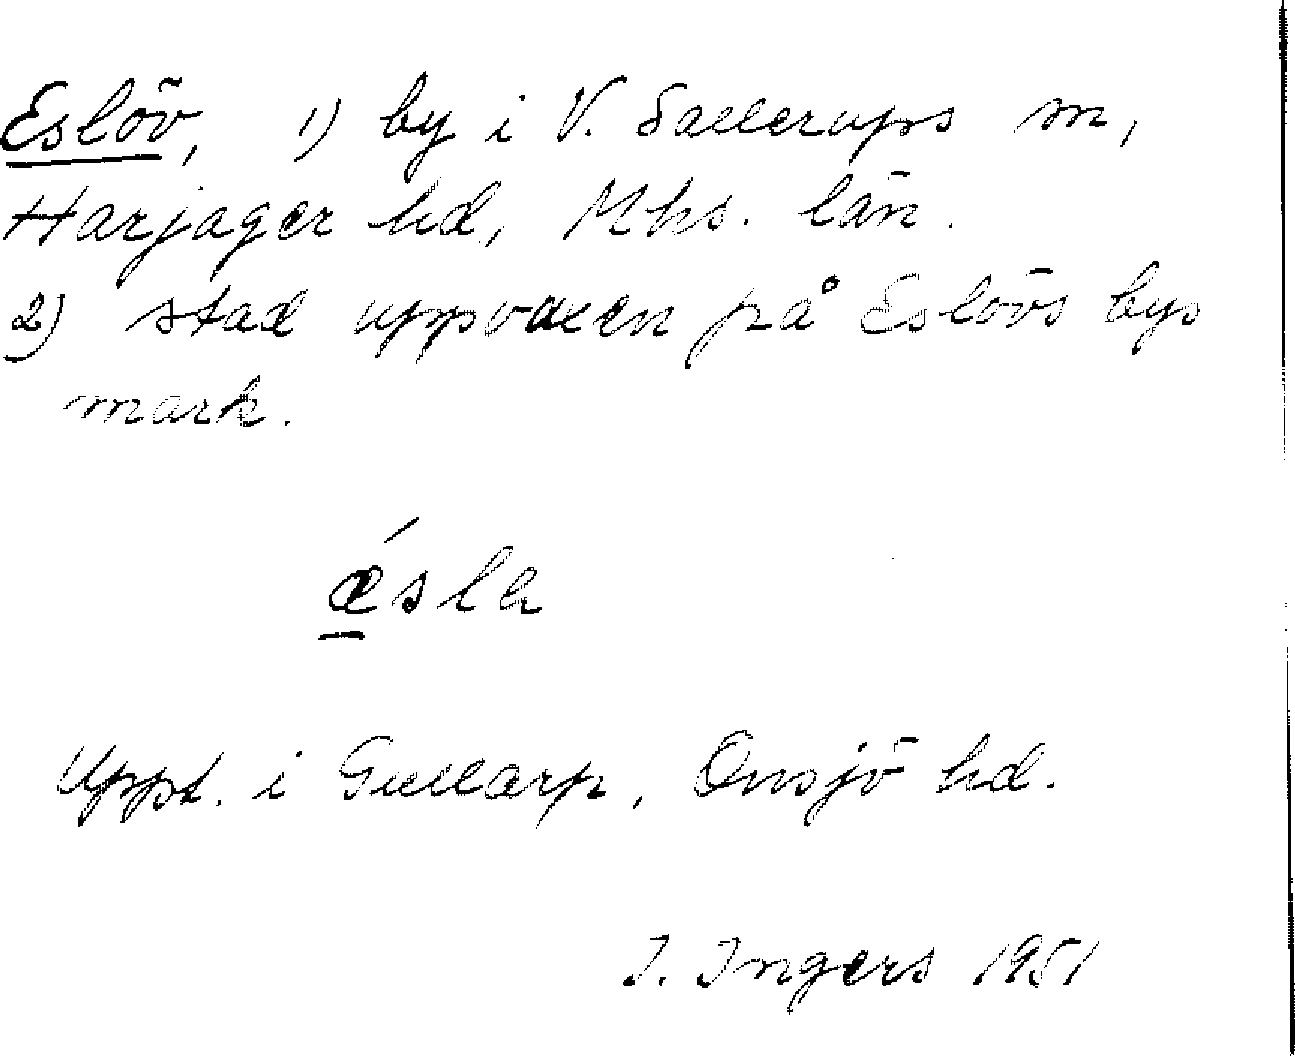 Eslöv, 1) by i V. Sallerups sn,
Harjager hd, Mhs. län.
2) stad uppvaxen på Eslövs bys
mark.
ǽsla
Uppt. i Gullarp, Onsjö hd.
I. Ingers 1951